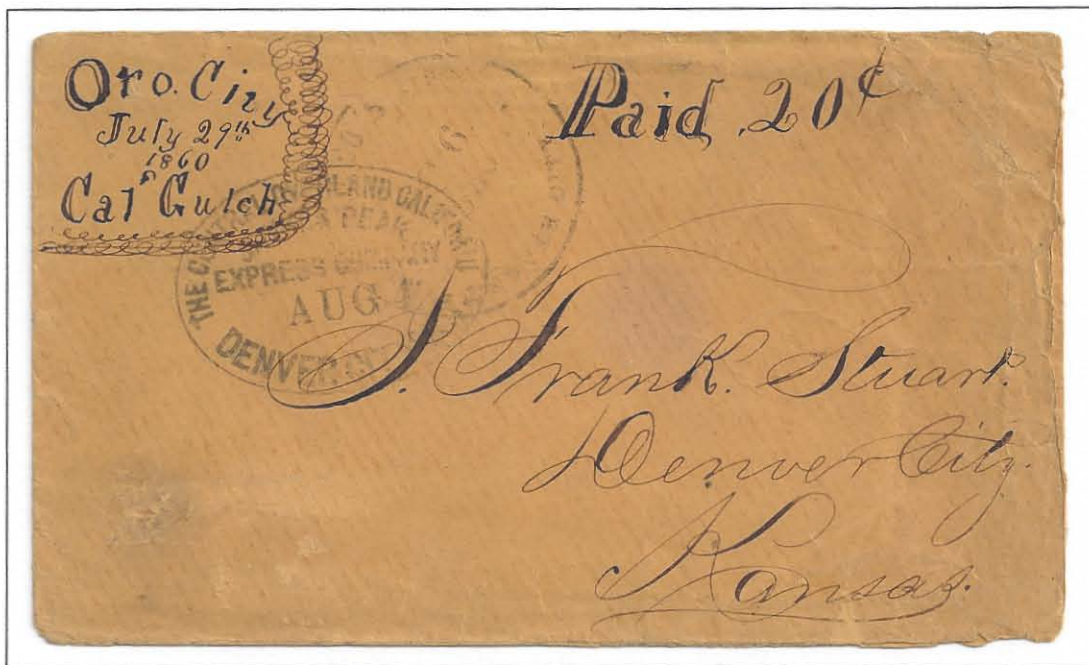 Oro. City
July 29th
1860
Cal Gulch
Paid 20¢
THE CALIFORNIA
PEAK
EXPRESS COMPANY
AUG
DENVER CITY
S. Frank. Stuart.
Denver City.
Kansas.